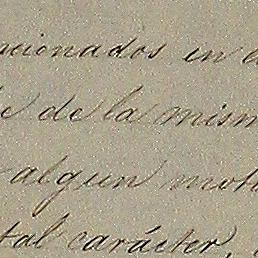 cionados in
de la mism
algun moti
tal carácter,